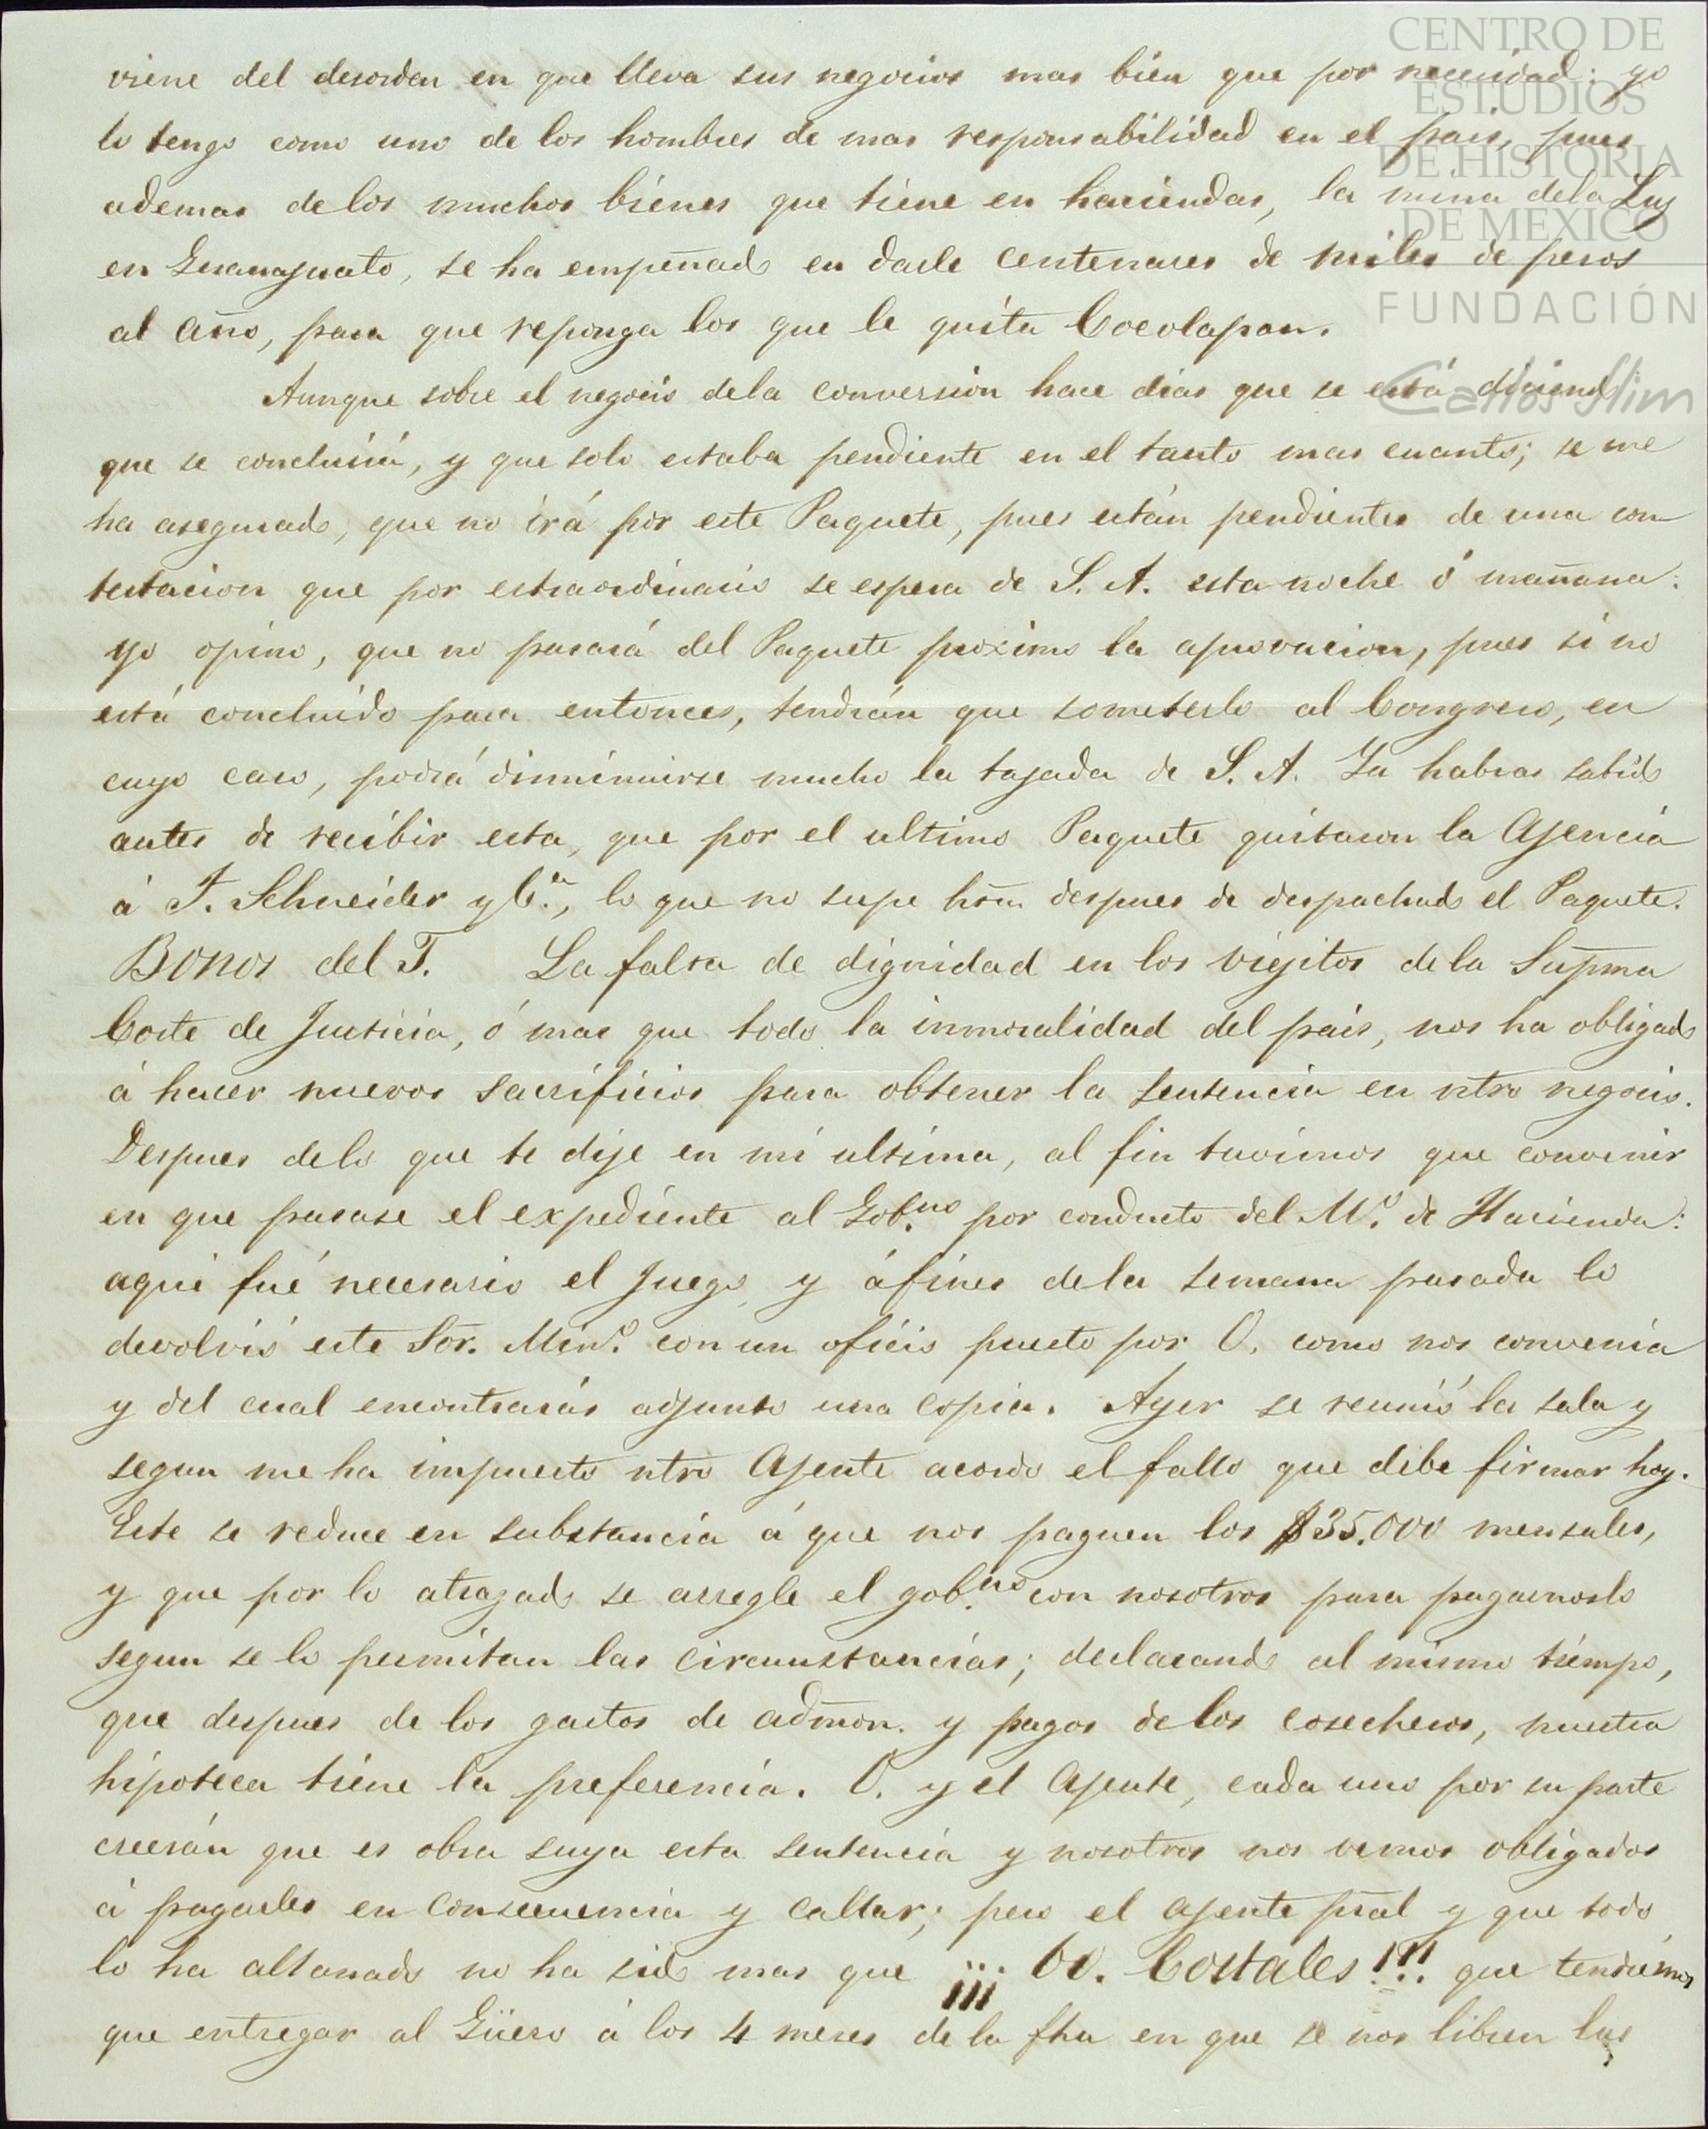 CENTRO DE
ESTUDIOS
DE HISTORIA
DE MEXICO
FUNDACIÓN
Carlos Slim
viene del desorden en que lleva sus negocios mas bien que por necesidad: yo
lo tengo como uno de los hombres de mas responsabilidad en el pais, pues
ademas de los muchos bienes que tiene en haciendas, la mina dela Luz
en Guanajuato, se ha empeñado en darle centenares de miles de pesos
al año, para que reponga los que le quita Cocolapan.
Aunque sobre el negocio dela conversion hace dias que se está diciendo
que se concluirá, y que solo estaba pendiente en el tanto mas cuanto; se me
ha asegurado, que no irá por este Paquete, pues están pendientes de una con
testacion que por estraordinario se espera de S. A. esta noche ó mañana:
yo opino, que no pasará del Paquete proximo la aprovacion, pues si no
está concluido para entonces, tendrán que someterlo al Congreso, en
cuyo caso, podrá disminuirse mucho la tajada de S. A. Ya habras sabido
antes de recibir esta, que por el ultimo Paquete quitaron la Ajencia
á J. Schneider y Ca., lo que no supe hta. despues de despachado el Paquete.
Bonos del T. La falta de dignidad en los viejitos dela Supma
Corte de Justicia, ó mas que todo la inmoralidad del pais, nos ha obligado
á hacer nuevos sacrificios para obtener la sentencia en ntro negocio.
Despues delo que te dije en mi ultima, al fin tuvimos que convenir
en que pasase el expediente al Gob.no por conducto del M.o de Hacienda:
aqui fué necesario el Juego, y áfines dela semana pasada lo
devolvió este Sor. Min.o con un oficio puesto por O. como nos convenia
y del cual encontrarás adjunto una copia. Ayer se reunió la sala y
segun me ha impuesto ntro Ajente acordo el fallo que debe firmar hoy.
Este se reduce en substancia á que nos paguen los $35.000 mensales,
y que por lo atrazado se arregle el gob.no con nosotros para pagarnoslo
segun se lo permitan las circunstancias; declarando al mismo tiempo,
que despues de los gastos de admon. y pagos de los cosecheros, nuestra
hipoteca tiene la preferencia. O. y el Ajente, cada uno por su parte
creerán que es obra suya esta sentencia y nosotros nos vemos obligados
á pagarles en consecuencia y callar; pero el ajente pral y que todo
lo ha allanado no ha sido mas que ¡¡¡ 60. Costales!!! que tendrémos
que entregar al Güero á los 4 meses de la fha en que se nos libren las